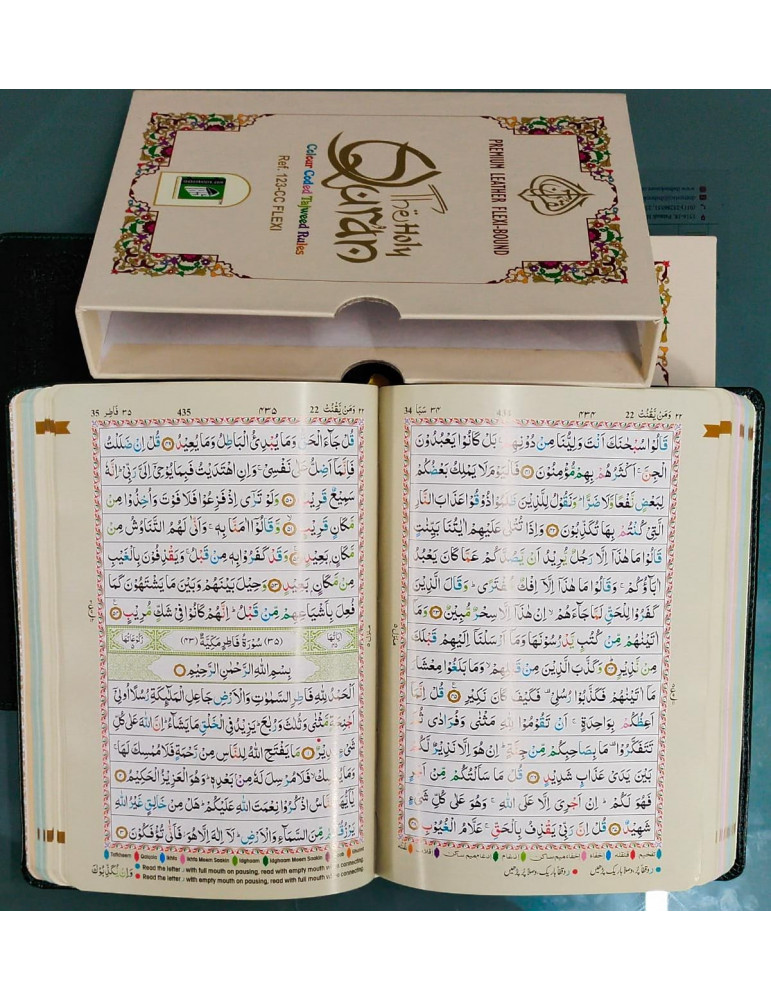 PREMIUM LEATHER FLEXI-BOUND
The Holy
Qur'an
Colour Coded Tajweed Rules
Ref. 123-CC FLEXI
34 سَبَا ٣٤ ٤٣٤ 22 وَمَنْ يَّقْنُتْ ٢٢
قَالُوْا سُبْحٰنَكَ اَنْتَ وَلِيُّنَا مِنْ دُوْنِهِمْ ۚ بَلْ كَانُوْا يَعْبُدُوْنَ
الْجِنَّ ۚ اَكْثَرُهُمْ بِهِمْ مُّؤْمِنُوْنَ ﴿٤١﴾ فَالْيَوْمَ لَا يَمْلِكُ بَعْضُكُمْ
لِبَعْضٍ نَّفْعًا وَّلَا ضَرًّا ؕ وَنَقُوْلُ لِلَّذِيْنَ ظَلَمُوْا ذُوْقُوْا عَذَابَ النَّارِ
الَّتِيْ كُنْتُمْ بِهَا تُكَذِّبُوْنَ ﴿٤٢﴾ وَاِذَا تُتْلٰى عَلَيْهِمْ اٰيٰتُنَا بَيِّنٰتٍ
قَالُوْا مَا هٰذَاۤ اِلَّا رَجُلٌ يُّرِيْدُ اَنْ يَّصُدَّكُمْ عَمَّا كَانَ يَعْبُدُ
اٰبَآؤُكُمْ ۚ وَقَالُوْا مَا هٰذَاۤ اِلَّاۤ اِفْكٌ مُّفْتَرًى ؕ وَقَالَ الَّذِيْنَ
كَفَرُوْا لِلْحَقِّ لَمَّا جَآءَهُمْ ۙ اِنْ هٰذَاۤ اِلَّا سِحْرٌ مُّبِيْنٌ ﴿٤٣﴾ وَمَاۤ
اٰتَيْنٰهُمْ مِّنْ كُتُبٍ يَّدْرُسُوْنَهَا وَمَاۤ اَرْسَلْنَاۤ اِلَيْهِمْ قَبْلَكَ
مِنْ نَّذِيْرٍ ﴿٤٤﴾ وَكَذَّبَ الَّذِيْنَ مِنْ قَبْلِهِمْ ۙ وَمَا بَلَغُوْا مِعْشَارَ
مَاۤ اٰتَيْنٰهُمْ فَكَذَّبُوْا رُسُلِيْ ۫ فَكَيْفَ كَانَ نَكِيْرِ ﴿٤٥﴾ قُلْ اِنَّمَاۤ
اَعِظُكُمْ بِوَاحِدَةٍ ۚ اَنْ تَقُوْمُوْا لِلّٰهِ مَثْنٰى وَفُرَادٰى ثُمَّ
تَتَفَكَّرُوْا ۫ مَا بِصَاحِبِكُمْ مِّنْ جِنَّةٍ ؕ اِنْ هُوَ اِلَّا نَذِيْرٌ لَّكُمْ
بَيْنَ يَدَيْ عَذَابٍ شَدِيْدٍ ﴿٤٦﴾ قُلْ مَا سَاَلْتُكُمْ مِّنْ اَجْرٍ
فَهُوَ لَكُمْ ؕ اِنْ اَجْرِيَ اِلَّا عَلَى اللّٰهِ ۚ وَهُوَ عَلٰى كُلِّ شَيْءٍ
شَهِيْدٌ ﴿٤٧﴾ قُلْ اِنَّ رَبِّيْ يَقْذِفُ بِالْحَقِّ ۚ عَلَّامُ الْغُيُوْبِ ﴿٤٨﴾
35 فَاطِر ٣٥ 435 ٤٣٥ 22 وَمَنْ يَّقْنُتْ ٢٢
قُلْ جَآءَ الْحَقُّ وَمَا يُبْدِئُ الْبَاطِلُ وَمَا يُعِيْدُ ﴿٤٩﴾ قُلْ اِنْ ضَلَلْتُ
فَاِنَّمَاۤ اَضِلُّ عَلٰى نَفْسِيْ ۚ وَاِنِ اهْتَدَيْتُ فَبِمَا يُوْحِيْۤ اِلَيَّ رَبِّيْ ؕ اِنَّهٗ
سَمِيْعٌ قَرِيْبٌ ﴿٥٠﴾ وَلَوْ تَرٰۤى اِذْ فَزِعُوْا فَلَا فَوْتَ وَاُخِذُوْا مِنْ
مَّكَانٍ قَرِيْبٍ ﴿٥١﴾ وَّقَالُوْۤا اٰمَنَّا بِهٖ ۚ وَاَنّٰى لَهُمُ التَّنَاوُشُ مِنْ
مَّكَانٍۭ بَعِيْدٍ ﴿٥٢﴾ وَّقَدْ كَفَرُوْا بِهٖ مِنْ قَبْلُ ۚ وَيَقْذِفُوْنَ بِالْغَيْبِ
مِنْ مَّكَانٍۭ بَعِيْدٍ ﴿٥٣﴾ وَحِيْلَ بَيْنَهُمْ وَبَيْنَ مَا يَشْتَهُوْنَ كَمَا
فُعِلَ بِاَشْيَاعِهِمْ مِّنْ قَبْلُ ؕ اِنَّهُمْ كَانُوْا فِيْ شَكٍّ مُّرِيْبٍ ﴿٥٤﴾
اٰيَاتُهَا ٤٥ (٣٥) سُوْرَةُ فَاطِرٍ مَكِّيَّةٌ (٤٣) رُكُوْعَاتُهَا
بِسْمِ اللّٰهِ الرَّحْمٰنِ الرَّحِيْمِ
اَلْحَمْدُ لِلّٰهِ فَاطِرِ السَّمٰوٰتِ وَالْاَرْضِ جَاعِلِ الْمَلٰٓئِكَةِ رُسُلًا اُولِيْۤ
اَجْنِحَةٍ مَّثْنٰى وَثُلٰثَ وَرُبٰعَ ؕ يَزِيْدُ فِي الْخَلْقِ مَا يَشَآءُ ؕ اِنَّ اللّٰهَ عَلٰى كُلِّ
شَيْءٍ قَدِيْرٌ ﴿١﴾ مَا يَفْتَحِ اللّٰهُ لِلنَّاسِ مِنْ رَّحْمَةٍ فَلَا مُمْسِكَ لَهَا ۚ
وَمَا يُمْسِكْ ۙ فَلَا مُرْسِلَ لَهٗ مِنْۢ بَعْدِهٖ ؕ وَهُوَ الْعَزِيْزُ الْحَكِيْمُ ﴿٢﴾
يٰۤاَيُّهَا النَّاسُ اذْكُرُوْا نِعْمَتَ اللّٰهِ عَلَيْكُمْ ؕ هَلْ مِنْ خَالِقٍ غَيْرُ اللّٰهِ
يَرْزُقُكُمْ مِّنَ السَّمَآءِ وَالْاَرْضِ ؕ لَاۤ اِلٰهَ اِلَّا هُوَ ۫ فَاَنّٰى تُؤْفَكُوْنَ ﴿٣﴾
Tafkheem Qalqala Ikhfa Ikhfa Meem Saakin Idghaam Idghaam Meem Saakin
Read the letter ر with full mouth on pausing, read with empty mouth when connecting
Read the letter ر with empty mouth on pausing, read with full mouth when connecting
وَاِنْ يُّكَذِّبُوْكَ